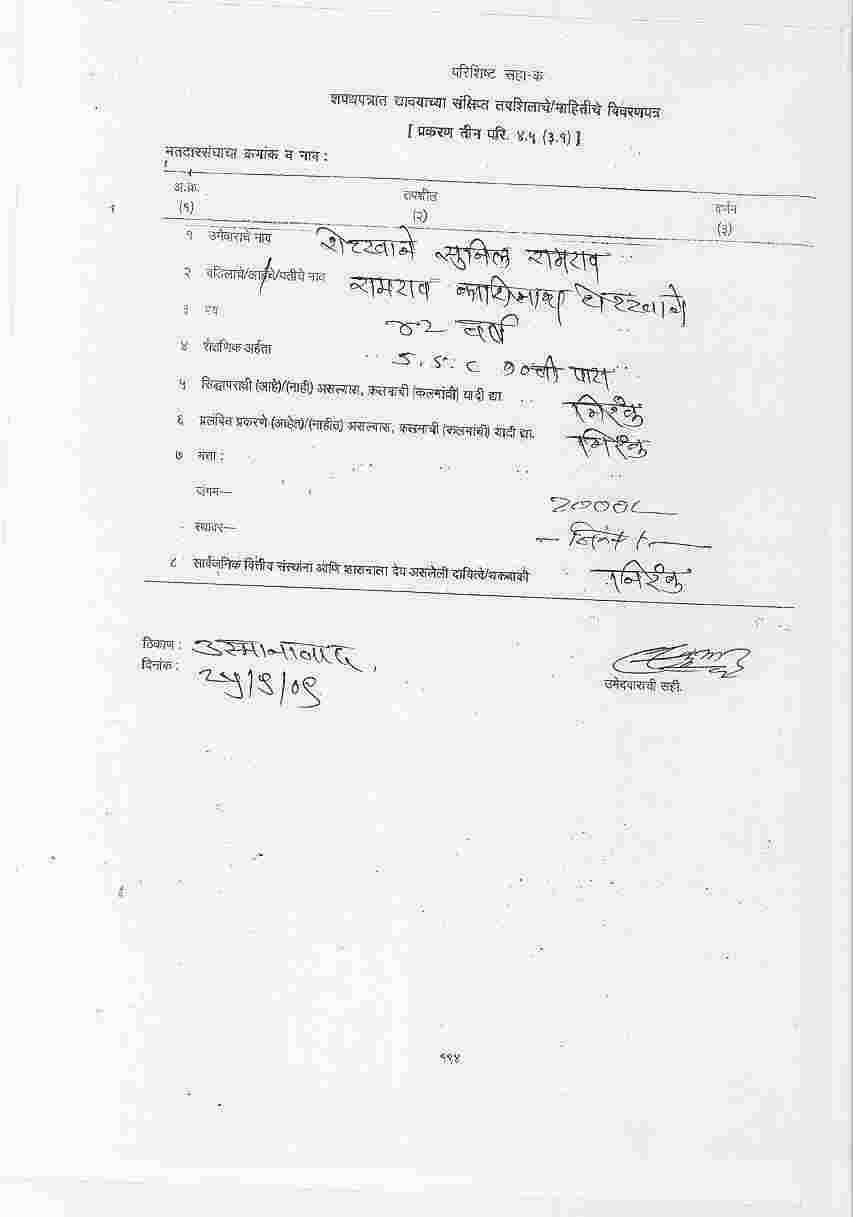 परिशिष्ट सहा-क
शपथपत्रात द्यावयाच्या संक्षिप्त तपशिलाचे/माहितीचे विवरणपत्र
[ प्रकरण तीन परि. ४.५ (३.१) ]
मतदारसंघाचा क्रमांक व नाव :
अ.क्र. तपशील वर्णन
(१) (२) (३)
१ उमेदवाराचे नाव शेरखाने सुनिल रामराव
२ वडिलांचे/आईचे/पतीचे नाव रामराव शेरखाने
३ वय ४२ वर्ष
४ शैक्षणिक अर्हता S.S.C १०वी पास
५ सिद्धापराधी (आहे)/(नाही) असल्यास, कलमांची (कलमांची) यादी द्या. निरंक
६ प्रलंबित प्रकरणे (आहेत)/(नाहीत) असल्यास, कलमांची (कलमांची) यादी द्या. निरंक
७ मत्ता :
जंगम—
स्थावर—
८ सार्वजनिक वित्तीय संस्थांना आणि शासनाला देय असलेली दायित्वे/थकबाकी निरंक
ठिकाण : उस्मानाबाद
दिनांक : २५/९/०९
उमेदवाराची सही.
११४